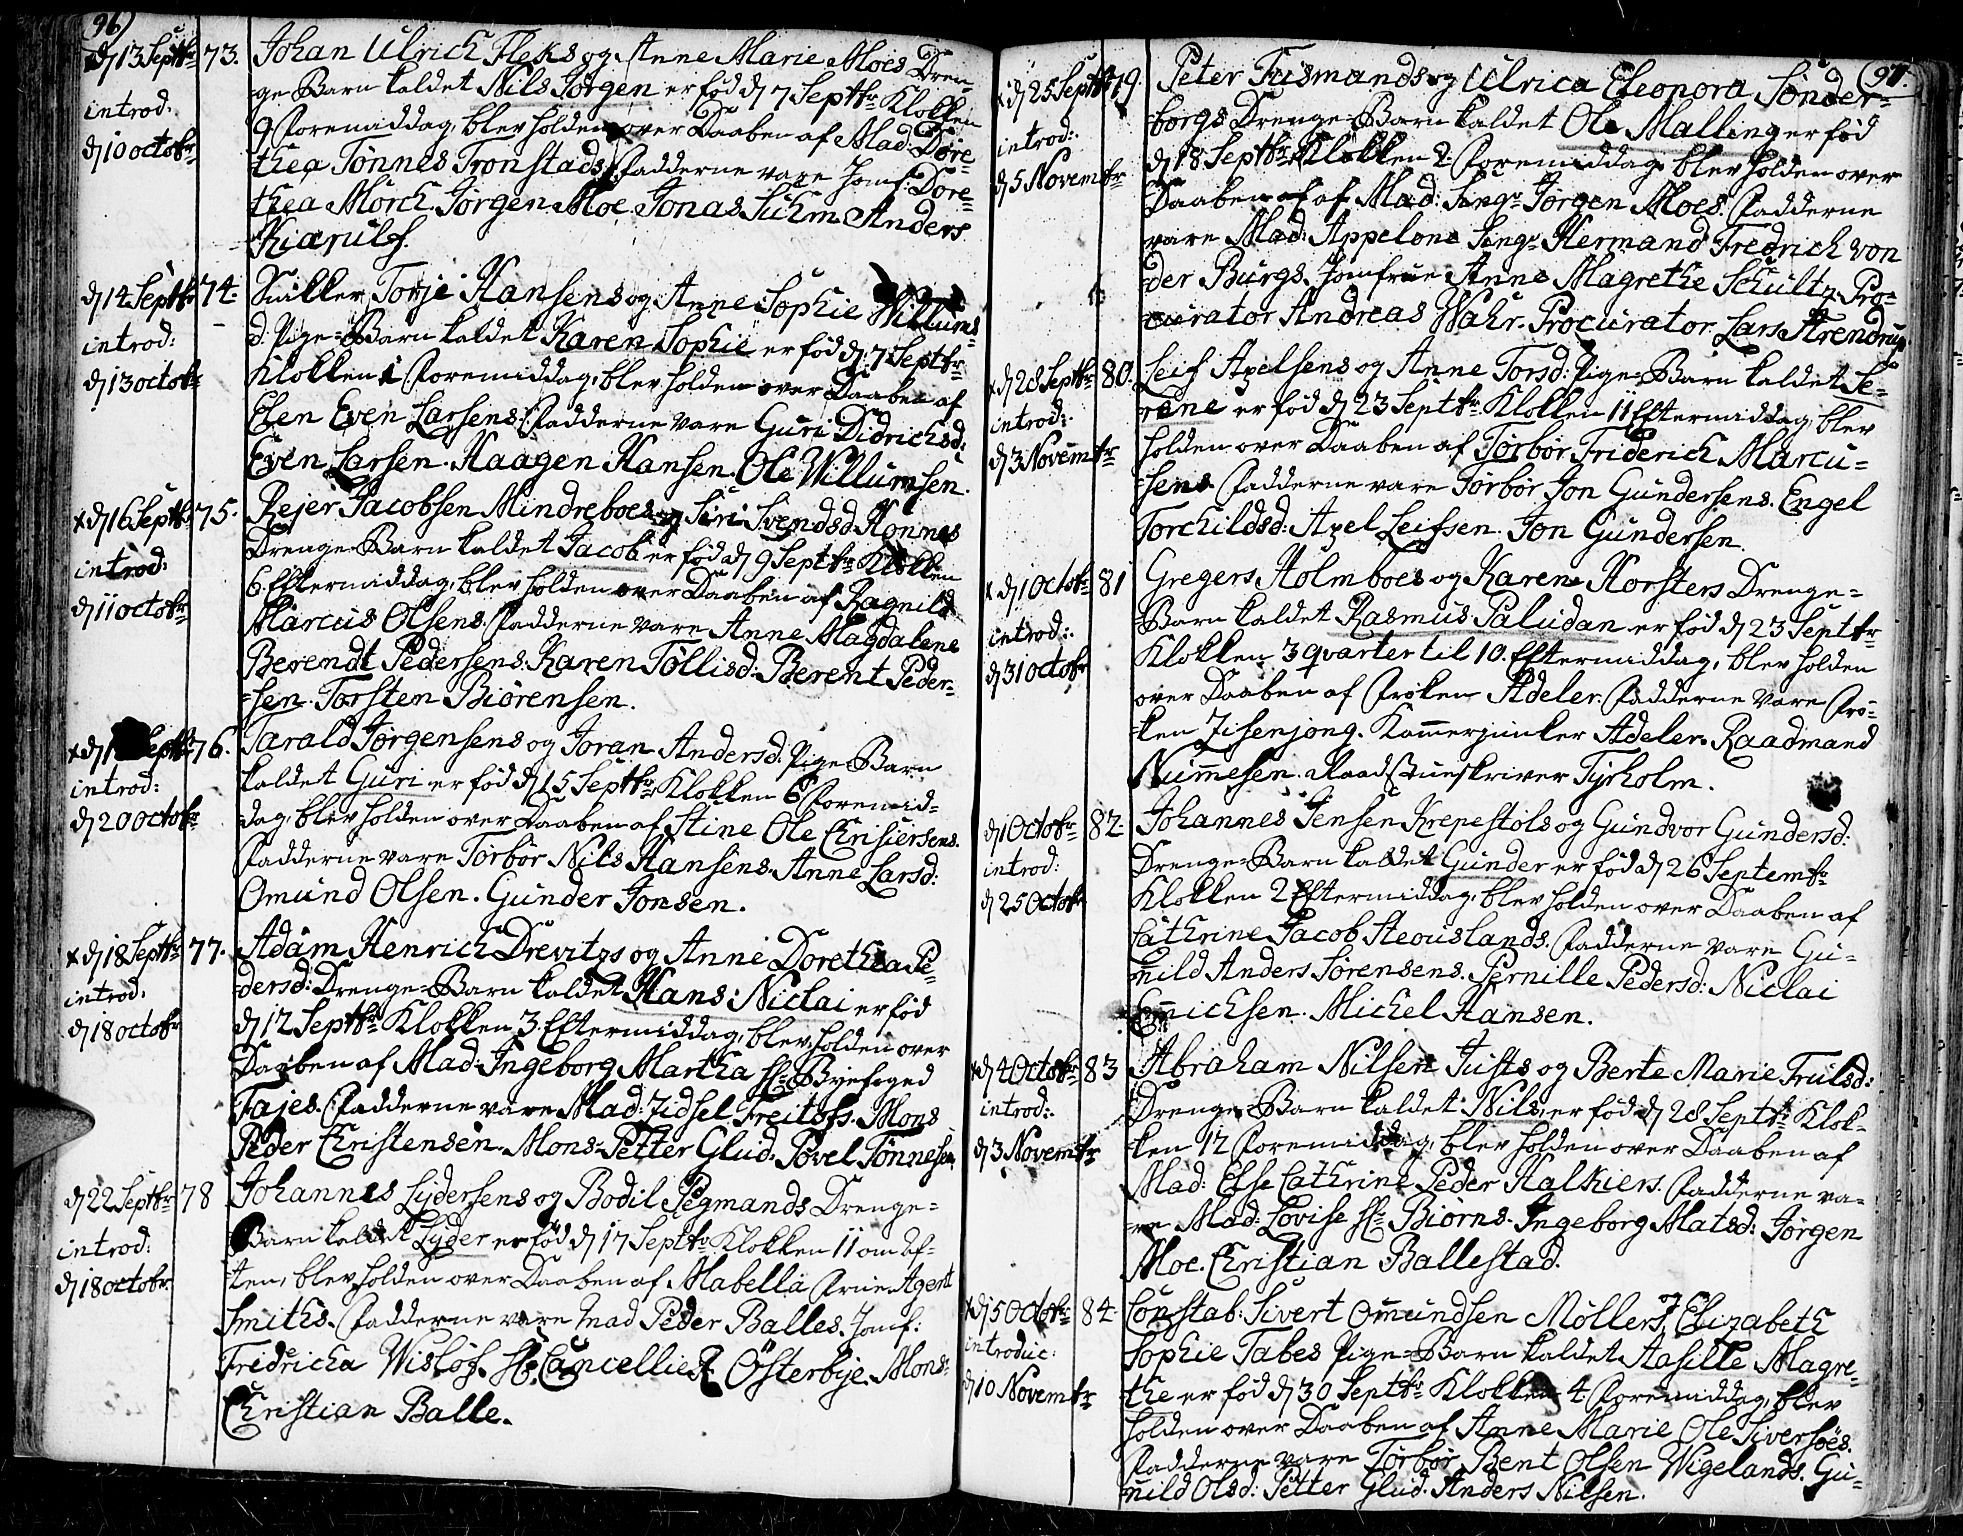 96)
d 13 Septbr 73. Johan Ulrich Fleks og Anne Marie Moes Dren-
introd: =ge Barn kaldet Nils Jørgen er fød d 7 Septbr Klokken
d 10 octobr 9 Formiddag, blev holden over Daaben af Mad: Dore-
thea Tønnes Tronstads, Fadderne vare Jomf: Dore-
thea Mørch. Jørgen Moe. Jonas Suhm. Anders
Kiærulf.
d 14 Septbr 74. Snikker Torje Hansens og Anne Sophie Willums
introd: d. Pige=Barn kaldet Karen Sophie er fød d. 7 Septbr
d 13 octobr Klokken 1 Foremiddag, blev holden over Daaben af
Elen Even Larsens. Fadderne vare Guri Didrichsd:
Even Larsen. Haagen Hansen. Ole Willumsen.
x d 16 Septbr 75. Rejer Jacobsen Mindreboes og Siri Svendsd. Honnes
introd: Drenge=Barn kaldet Jacob er fød d 9 Septbr Klokken
d 11 octobr 6 Eftermiddag, blev holden over Daaben af Ragnild
Marcus Olsens. Fadderne vare Anne Magdalene
Berendt Pedersens. Karen Tøllisd: Berent Peder-
=sen. Torsten Biørensen.
x d 1 Septbr 76. Tarald Jørgensens og Joran Andersd. Pige=Barn
introd: kaldet Guri er fød d 15 Septbr Klokken 6 Foremid=
d 20 octobr dag, blev holden over Daaben af Stine Ole Chrisiersens.
Fadderne vare Tørbør Nils Hansens. Anne Larsd:
Omund Olsen. Gunder Jonsen.
x d 18 Septbr 77. Adam Henrich Drevitzs og Anne Dorethea Pe-
introd. =dersd: Drenge=Barn kaldet Hans Niclai er fød
d 18 octobr d 12 Septbr Klokken 3 Eftermiddag, blev holden over
Daaben af Mad: Ingeborg Martha Hr Byefoged
Fajes. Fadderne vare Mad: Zidsel Freitofs. Mons
Peder Christensen. Mons Petter Glud. Povel Tønnesen
d 22 Septbr 78 Johannes Lydersens og Bodil Pegmands Drenge=
introd: Barn kaldet Lyder er fød d 17 Septbr Klokken 11 om Af-
d 18 octobr. ten, blev holden over Daaben af Mabella Frue Agent
Smiths. Fadderne vare Mad Peder Balles. Jomf:
Fredricha Wisløf. Hr. Cancellie R. Østerbye. Mons:
Christian Balle.
97.
x d 25 Septbr 79. Peter Tusmands og Ulrica Eleonora Sønder=
introd: =borgs Drenge=Barn kaldet Ole Malling er fød
d 5 Novembr d 18 Septbr Klokken 2 Foremiddag, blev holden over
Daaben af af Mad: Sengr Jørgen Moes. Fadderne
vare Mad: Appelone Sengr Hermand Fredrich von
der Burgs. Jomfrue Anne Magrethe Schultz. Pro=
curator Andreas Wahr. Procurator Lars Arendrup
x d 28 Septbr 80. Leif Axelsens og Anne Torsd: Pige=Barn kaldet Se-
introd: rene er fød d 23 Septbr Klokken 11 Eftermiddag, blev
d 3 Novembr holden over Daaben af Tørbør Friderich Marcu=
=sens. Fadderne vare Tørbør Jon Gundersens. Engel
Torchildsd: Axel Leifsen. Jon Gundersen.
x d 1 Octobr 81 Gregers Holmboes og Karen Horsters Drenge=
introd: Barn kaldet Rasmus Paludan er fød d 23 Septbr
d 31 Octobr Klokken 3 qvarter til 10. Eftermiddag, blev holden
over Daaben af Frøken Adeler. Fadderne vare Frø-
=ken Zisenjong. Kammerjunker Adeler. Raadmand
Nummesen. Raadstueskriver Tyrholm.
d 1 Octobr 82. Johannes Jensen Krepestols og Gundvor Gundersd:
introd: Drenge=Barn kaldet Gunder er fød d 26 Septembr
d 25 Octobr Klokken 2 Eftermiddag, blev holden over Daaben af
Cathrine Jacob Steouslands. Fadderne vare Gu=
nild Anders Sørensens. Pernille Pedersd: Niclai
Emichsen. Michel Hansen.
x d 4 Octobr 83 Abraham Nilsen Justs og Berte Marie Trulsd:
introd: Drenge=Barn kaldet Nils er fød d 28 Septbr Klok-
d 3 Novembr ken 12 Foremiddag, blev holden over Daaben af
Mad: Else Cathrine Peder Kalkiers. Fadderne va-
=re Mad: Lovise Hr Biørns. Ingeborg Matsd: Jørgen
Moe. Christian Ballestad.
x d 5 Octobr 84. Constab: Sivert Omundsen Møllers og Elizabeth
introduc: Sophie Tabes Pige=Barn kaldet Aasille Magre-
d 10 Novembr the er fød d 30 Septbr Klokken 4 Foremiddag, blev
holden over Daaben af Anne Marie Ole Siversøes.
Fadderne vare Tørbør Bent Olsen Wigelands. Gu-
nild Olsd: Petter Glud. Anders Nilsen.